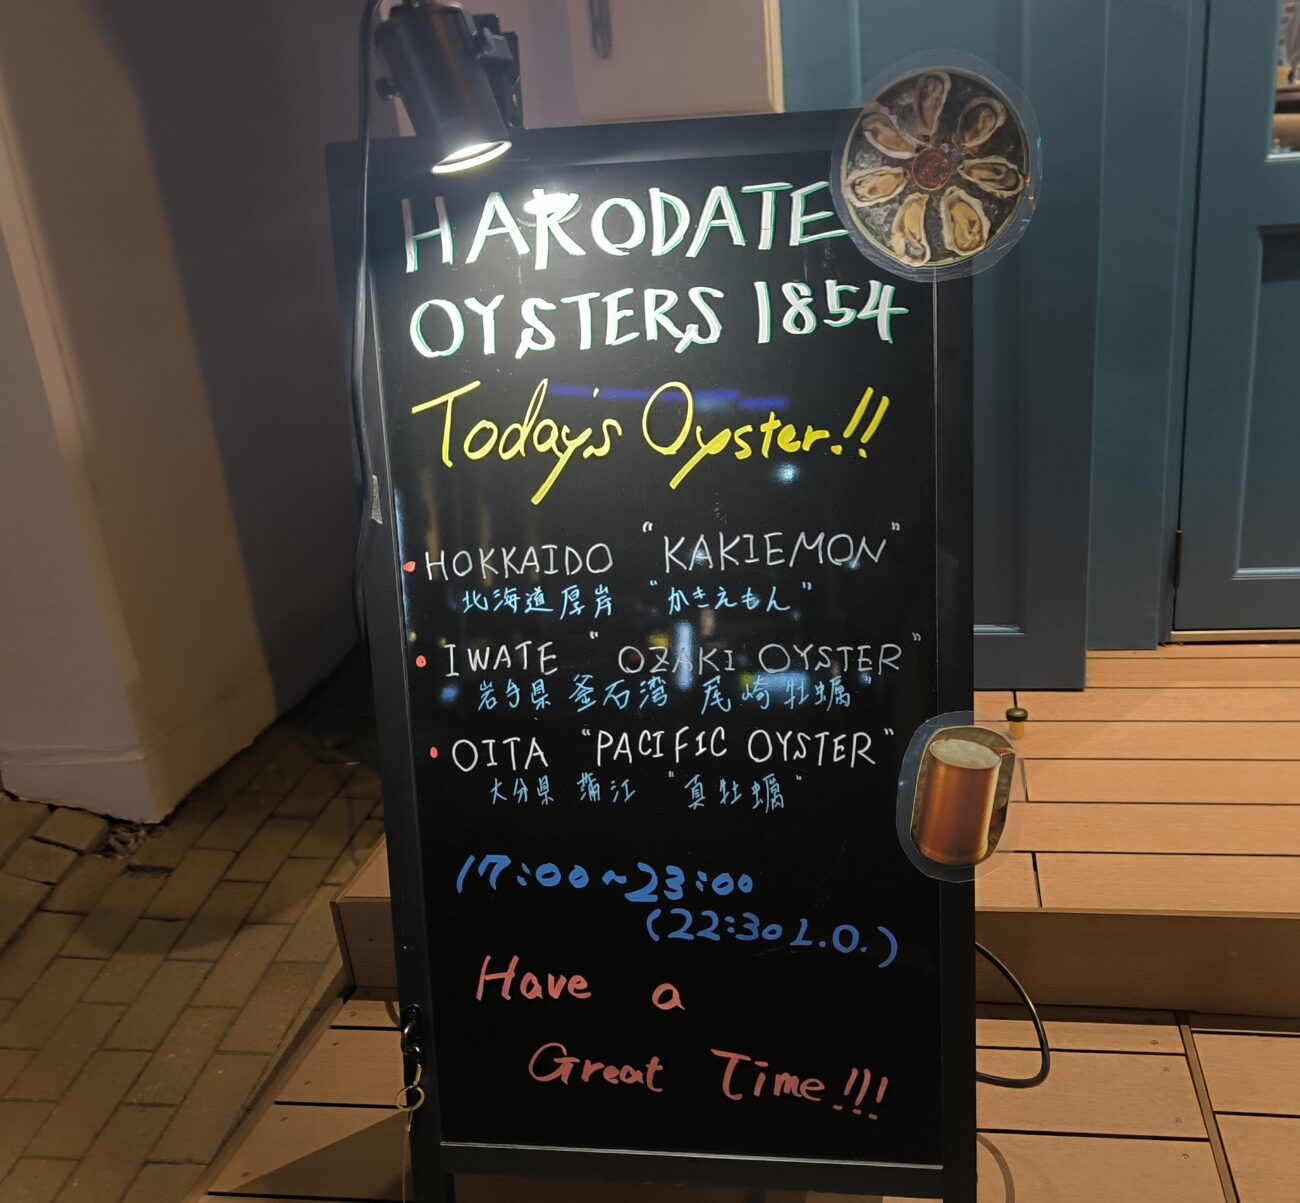 HAKODATE
OYSTERS 1854
Today's Oyster!!
・HOKKAIDO "KAKIEMON"
北海道厚岸 "かきえもん"
・IWATE "OZAKI OYSTER"
岩手県 釜石湾 尾崎牡蠣"
・OITA "PACIFIC OYSTER"
大分県 蒲江 "真牡蠣"
17:00~23:00
(22:30 L.O.)
Have a
Great Time!!!